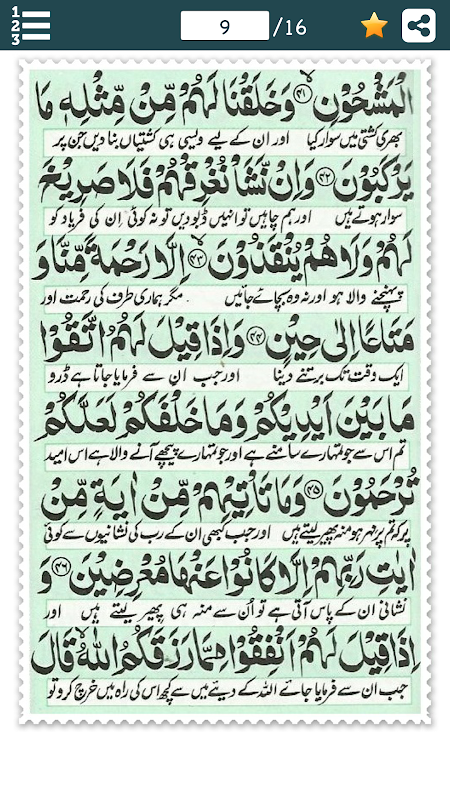 1
2
3
9 /16
الْمَشْحُوْنِ ﴿۴۱﴾ وَخَلَقْنَا لَهُمْ مِّنْ مِّثْلِهٖ مَا
بھری کشتی میں سوار کیا اور ان کے لیے ویسی ہی کشتیاں بنا دیں جن پر
يَرْكَبُوْنَ ﴿۴۲﴾ وَاِنْ نَّشَاْ نُغْرِقْهُمْ فَلَا صَرِيْخَ
سوار ہوتے ہیں اور ہم چاہیں تو انہیں ڈبو دیں تو نہ کوئی اِن کی فریاد کو
لَهُمْ وَلَا هُمْ يُنْقَذُوْنَ ﴿۴۳﴾ اِلَّا رَحْمَةً مِّنَّا وَ
پہنچنے والا ہو اور نہ وہ بچائے جائیں . مگر ہماری طرف کی رحمت اور
مَتَاعًا اِلٰى حِيْنٍ ﴿۴۴﴾ وَاِذَا قِيْلَ لَهُمُ اتَّقُوْا
ایک وقت تک برتنے دینا اور جب ان سے فرمایا جاتا ہے ڈرو
مَا بَيْنَ اَيْدِيْكُمْ وَمَا خَلْفَكُمْ لَعَلَّكُمْ
تم اس سے جو تمہارے سامنے ہے اور جو تمہارے پیچھے آنے والا ہے اس امید
تُرْحَمُوْنَ ﴿۴۵﴾ وَمَا تَاْتِيْهِمْ مِّنْ اٰيَةٍ مِّنْ
پر کہ تم پر مہر ہو منہ پھیر لیتے ہیں اور جب کبھی ان کے رب کی نشانیوں سے کوئی
اٰيٰتِ رَبِّهِمْ اِلَّا كَانُوْا عَنْهَا مُعْرِضِيْنَ ﴿۴۶﴾ وَ
نشانی ان کے پاس آتی ہے تو اُس سے منہ ہی پھیر لیتے ہیں اور
اِذَا قِيْلَ لَهُمْ اَنْفِقُوْا مِمَّا رَزَقَكُمُ اللّٰهُ قَالَ
جب ان سے فرمایا جائے اللہ کے دیئے میں سے کچھ اس کی راہ میں خرچ کرو تو